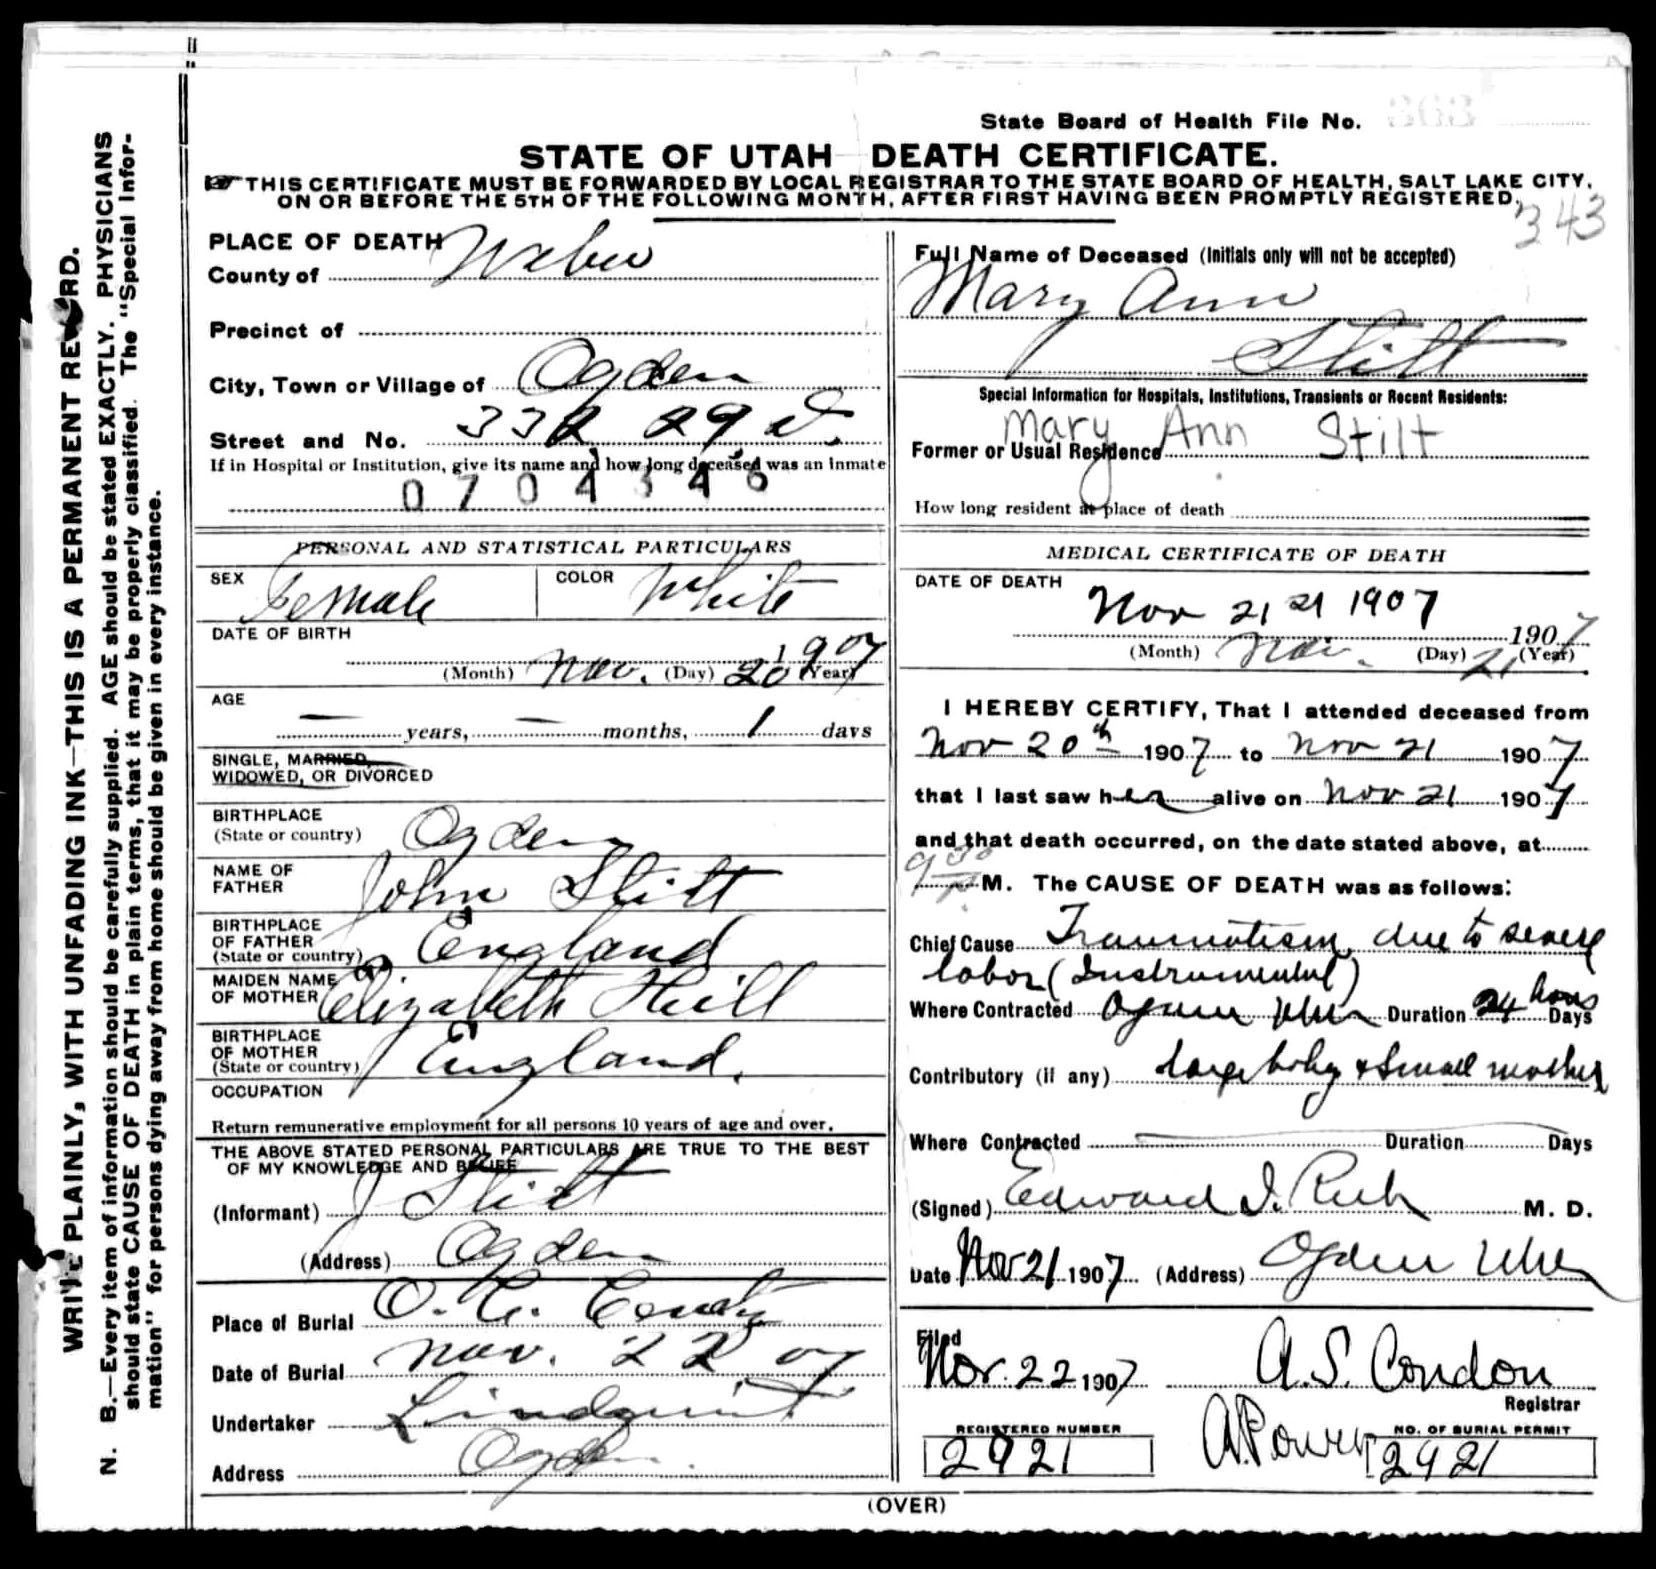 State Board of Health File No.
STATE OF UTAH DEATH CERTIFICATE.
☞ THIS CERTIFICATE MUST BE FORWARDED BY LOCAL REGISTRAR TO THE STATE BOARD OF HEALTH, SALT LAKE CITY,
ON OR BEFORE THE 5TH OF THE FOLLOWING MONTH, AFTER FIRST HAVING BEEN PROMPTLY REGISTERED.
343
WRITE PLAINLY, WITH UNFADING INK—THIS IS A PERMANENT RECORD.
N. B.—Every item of information should be carefully supplied. AGE should be stated EXACTLY. PHYSICIANS
should state CAUSE OF DEATH in plain terms, that it may be properly classified. The "Special Infor-
mation" for persons dying away from home should be given in every instance.
PLACE OF DEATH
County of Weber
Precinct of
City, Town or Village of Ogden
Street and No. 332 29
If in Hospital or Institution, give its name and how long deceased was an inmate
0704346
PERSONAL AND STATISTICAL PARTICULARS
SEX Female COLOR White
DATE OF BIRTH
(Month) Nov. (Day) 20 1907 (Year)
AGE
— years, — months, 1 days
SINGLE, MARRIED,
WIDOWED, OR DIVORCED
BIRTHPLACE
(State or country) Ogden
NAME OF
FATHER John Stitt
BIRTHPLACE
OF FATHER
(State or country) England
MAIDEN NAME
OF MOTHER Elizabeth Hill
BIRTHPLACE
OF MOTHER
(State or country) England.
OCCUPATION
Return remunerative employment for all persons 10 years of age and over.
THE ABOVE STATED PERSONAL PARTICULARS ARE TRUE TO THE BEST
OF MY KNOWLEDGE AND BELIEF
(Informant) J Stitt
(Address) Ogden
Place of Burial O. C.
Date of Burial Nov. 22 07
Undertaker Lindquist
Address Ogden
Full Name of Deceased (Initials only will not be accepted)
Mary Ann
Stitt
Special Information for Hospitals, Institutions, Transients or Recent Residents:
Mary Ann Stilt
Former or Usual Residence
How long resident at place of death
MEDICAL CERTIFICATE OF DEATH
DATE OF DEATH
Nov 21 21 1907
1907
(Month) Nov. (Day) 21 (Year)
I HEREBY CERTIFY, That I attended deceased from
Nov 20th 1907 to Nov 21 1907
that I last saw her alive on Nov 21 1907
and that death occurred, on the date stated above, at
9 30 P. M. The CAUSE OF DEATH was as follows:
Chief Cause Traumatism due to severe
labor (Instrumental)
Where Contracted Ogden Utah Duration 24 hours Days
Contributory (if any) large baby & small mother
Where Contracted Duration Days
(Signed) Edward I. Rich M. D.
Date Nov 21 1907 (Address) Ogden Utah
Filed
Nov. 22 1907 A. S. Condon
Registrar
REGISTERED NUMBER
2921
NO. OF BURIAL PERMIT
2921
(OVER)